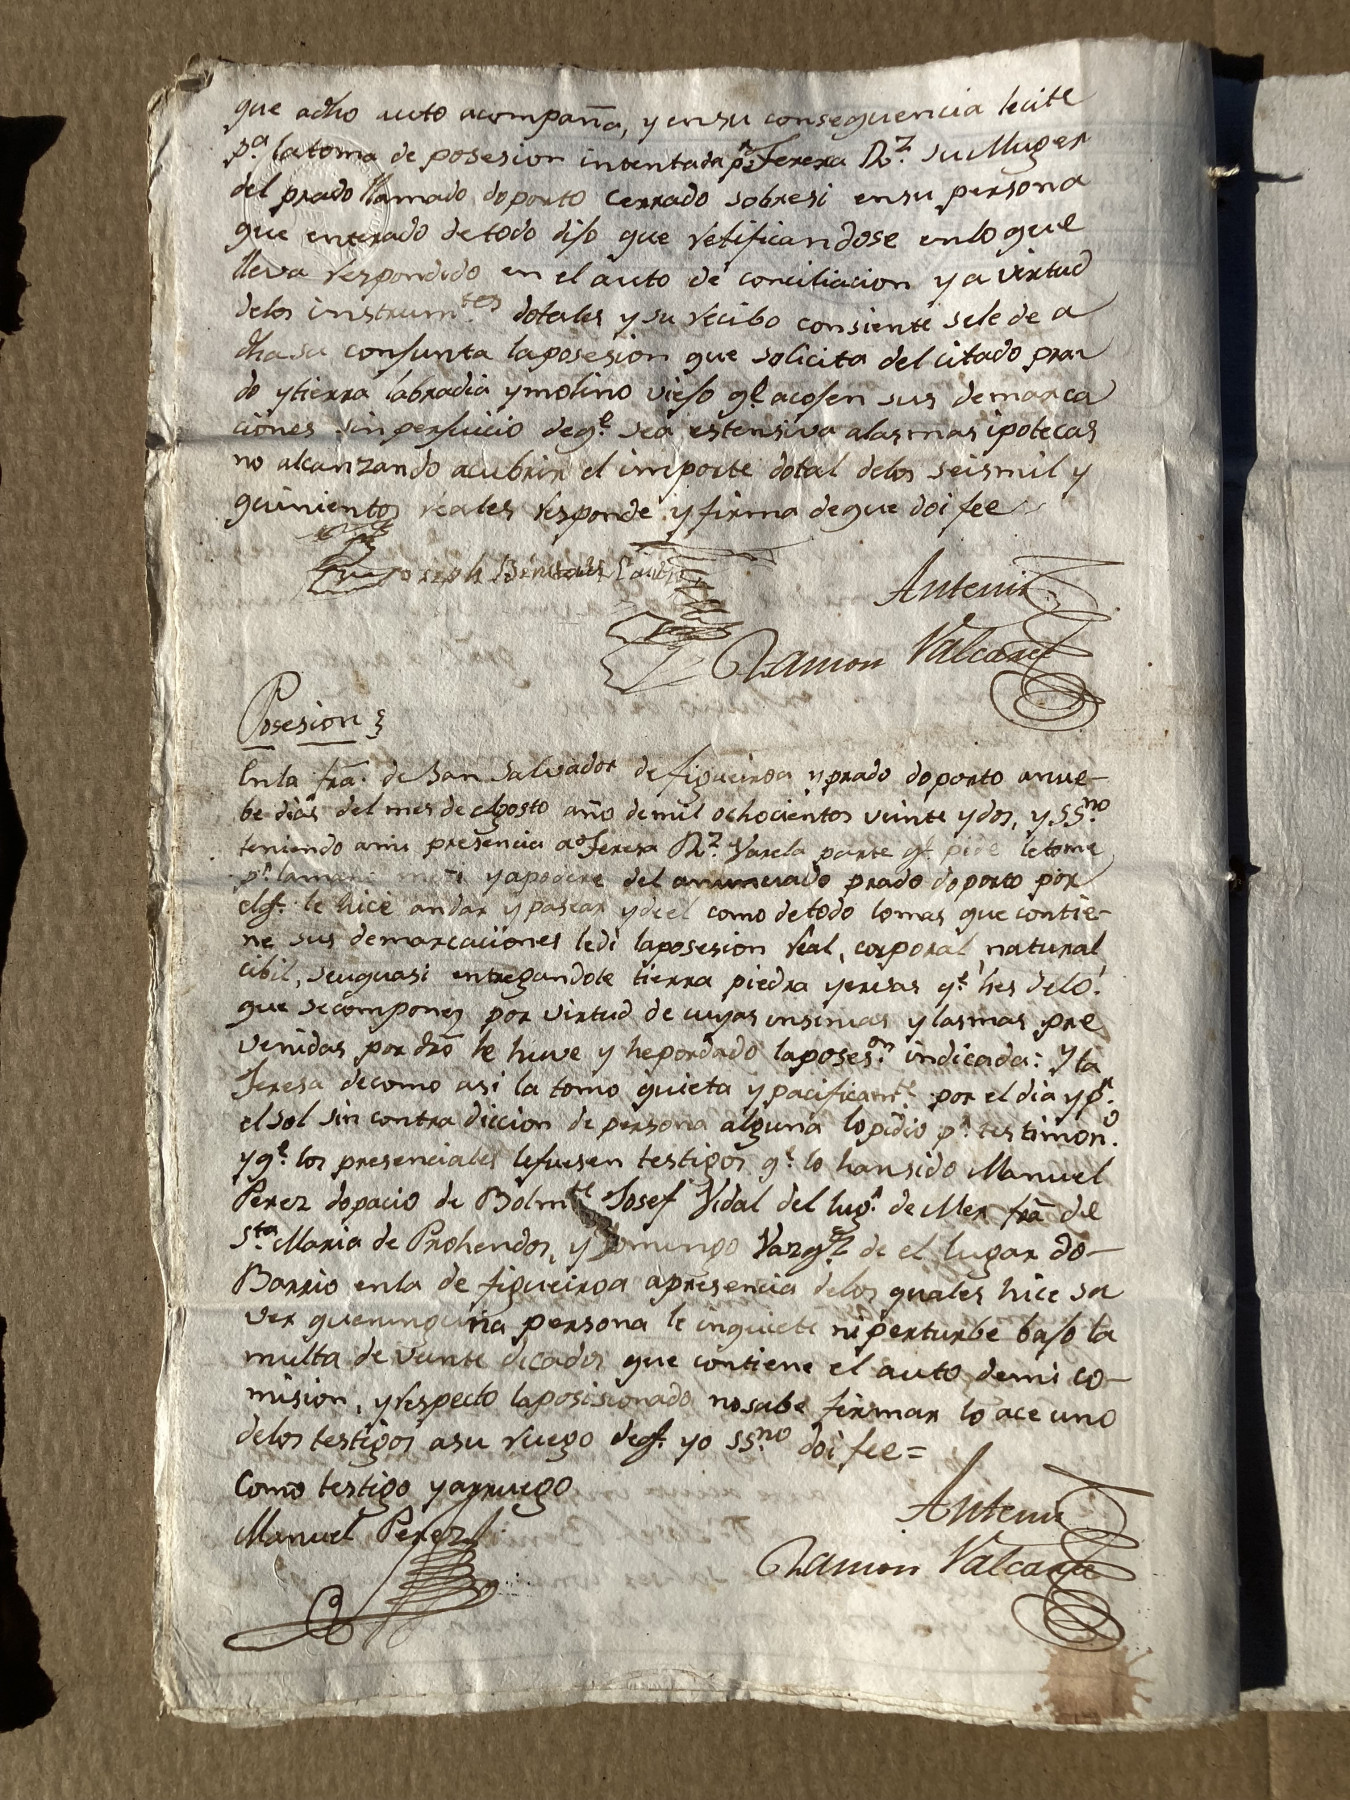 que adho auto acompaña, y en su consequencia lecite
pª la toma de posesion intentada pr Teresa Rz. su Muger
del prado llamado doporto cerrado sobresi en su persona
que enterado de todo dijo que retificandose en lo que
lleva respondido en el auto de conciliacion y a virtud
de los instrumtes dotales y su recibo consiente se le de a
dha su conjunta la posesion que solicita del citado pra-
do y tierra labradia y molino viejo qe acojen sus demarca
ciones sin perjuicio de qe sea estensiva alas mas ipotecas
no alcanzando acubrir el importe dotal delos seismil y
quinientos reales responde y firma de que doi fee
Joseph
Antemi
Ramon Valcarce
Posesion
En la fra. de San Salvador de figueiroa y prado doporto anue-
be dias del mes de Agosto año de mil ochocientos veinte y dos, yo SSno
teniendo ami presencia a Teresa Rz. Varela parte qe pide letome
pr la mano meti y apodere del anunciado prado doporto por
el qe le hice andar y pasear y de el como de todo lo mas que contie-
ne sus demarcaciones ledi laposesion real, corporal natural
cibil, seuquasi entregandole tierra piedra yerbas
que se compone, por virtud de cuyas insinias y las mas pre
venidas por dro le huve y he por dado la poseson indicada: Y la
Teresa de como asi la tomo quieta y pacificante por el dia y pr
el sol sin contradiccion de persona alguna lo pidio pr testimono.
y qe los presenciales lefuesen testigos qe lo han sido Manuel
Perez dopacio de Bolmte Josef Vidal del lugr de Mer fra de
Sta Maria de Prohendos, y Domingo Vazqz de el lugar do-
Barrio en la de figueiroa apresencia de los quales hice sa
ver que ninguna persona le inquiete ni perturbe bajo la
multa de veinte ducados que contiene el auto de mi co-
mision, y respecto laposisionado no sabe firmar lo ace uno
delos testigos asu ruego de qe yo SSno doi fee=
Como testigo y arruego
Manuel Perez
Antemi
Ramon Valcarce